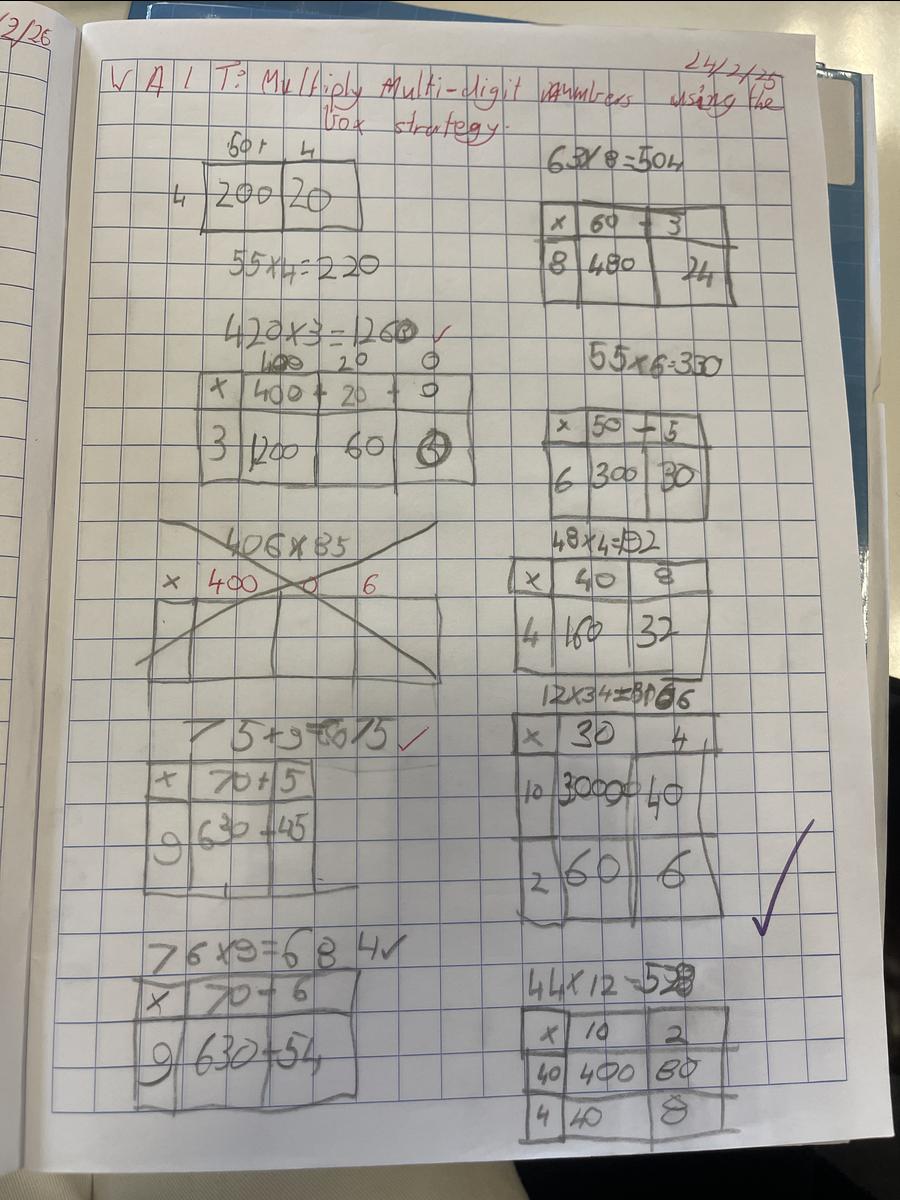 2/26
24/2/25
W A L T: Multiply Multi-digit numbers using the
box strategy.
50+ 4
4 200 20
55x4=220
420x3=1260 ✓
400 20 0
x 400 + 20 + 0
3 1200 60 0
406x85
x 400 0 6
75+9=675 ✓
x 70+ 5
9 630 - 45
76x9=684 ✓
x 70 - 6
9 630 - 54
63x8=504
x 60 - 3
8 480 24
55x6=330
x 50 - 5
6 300 30
48x4=192
x 40 8
4 160 32
12x34=
x 30 4
10 40
2 60 6
✓
44x12=528
x 10 2
40 400 80
4 40 8